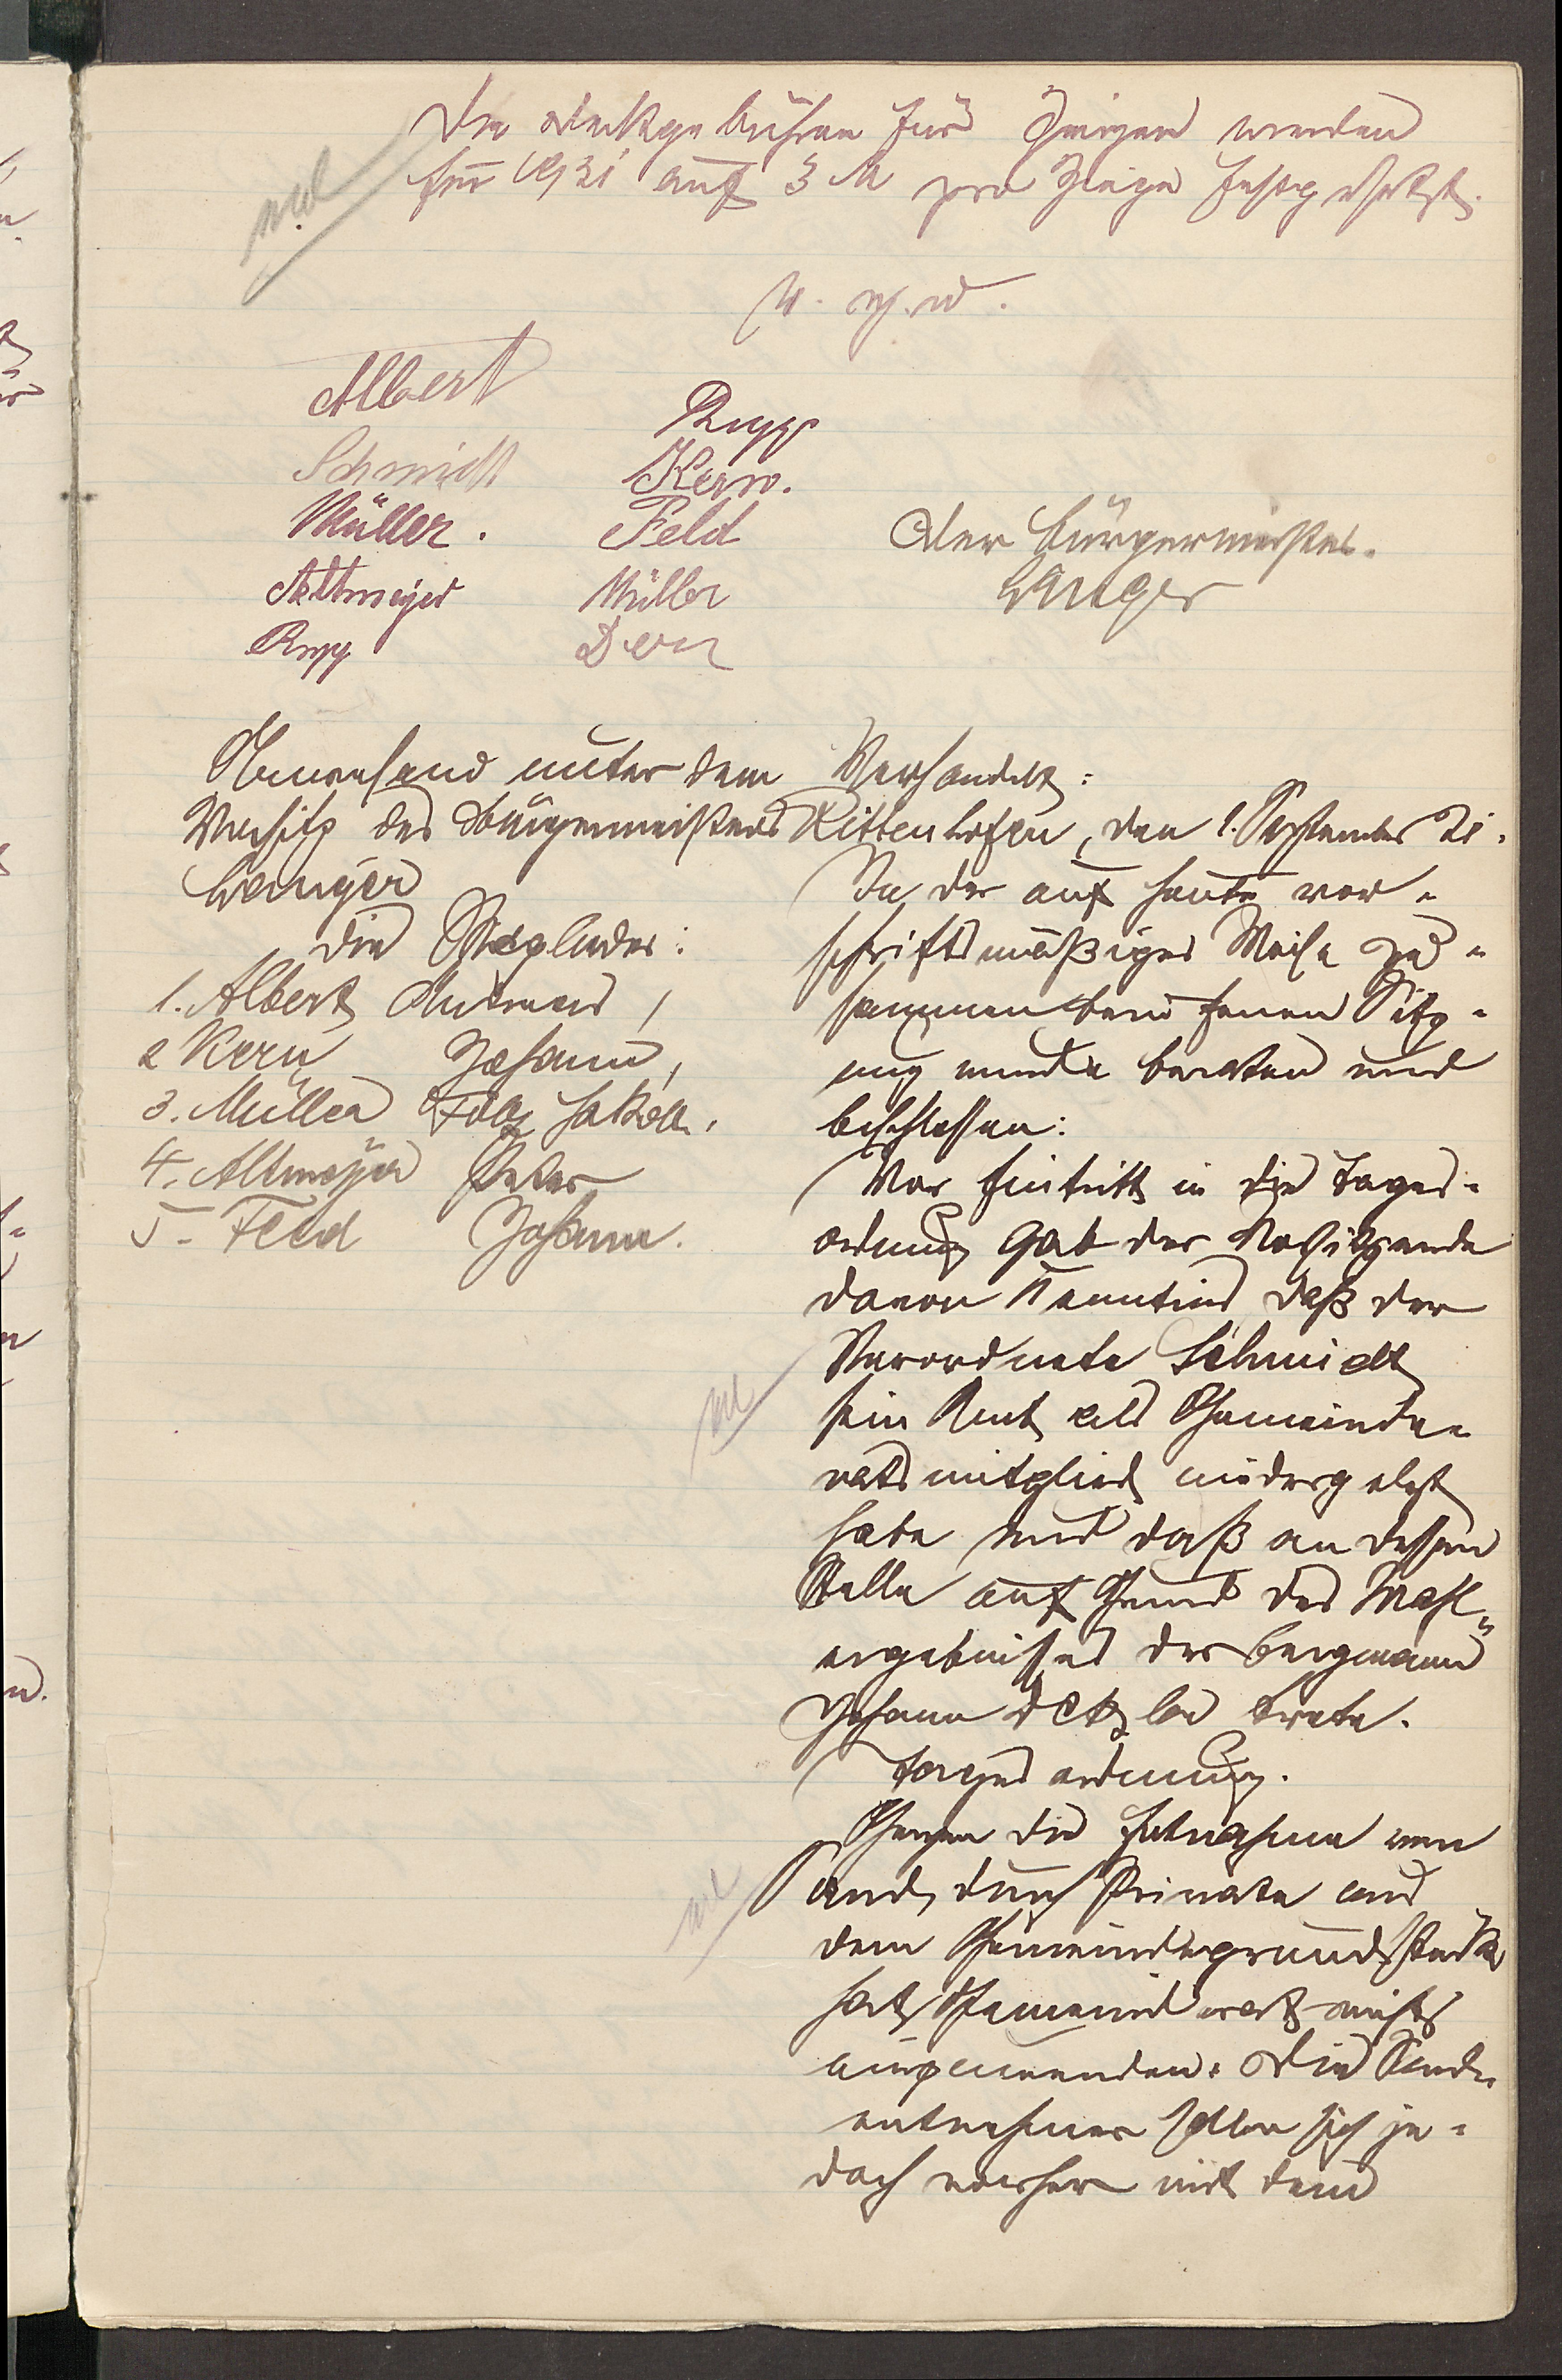 Die Deckgebühren für Ziegen werden
für 1921 auf 3 M pro Ziege festgesetzt.
v. g. u.
Albert
Schmidt
Müller.
Altmeyer
Rupp
Rupp
Kern.
Feld
Müller
Dörr
Der Bürgermeister.
Wanger
Anwesend unter dem
Vorsitz des Bürgermeisters
Wanger
die Mitglieder:
1. Albert Andreas,
2 Kern Johann,
3. Müller Folz Jakob,
4. Altmeyer Peter
5 - Feld Johann.
Verhandelt:
Rittenhofen, den 1. September 21.
In der auf heute vor-
schriftsmäßiger Weise zu-
sammenberufenen Sitz-
ung wurde beraten und
beschlossen:
Vor Eintritt in die Tages-
ordnung gab der Vorsitzende
davon Kenntnis daß der
Verordnete Schmidt
sein Amt als Gemeinde-
ratsmitglied niedergelegt
habe und daß an dessen
Stelle auf Grund des Wahl-
ergebnisses der Bergmann
Johann Detzler trete.
Tagesordnung.
Gegen die Entnahme von
Sand durch Private aus
dem Gemeindegrundstück
hat Gemeinderat nichts
einzuwenden. Die Sand-
entnehmer sollen sich je-
doch vorher mit dem